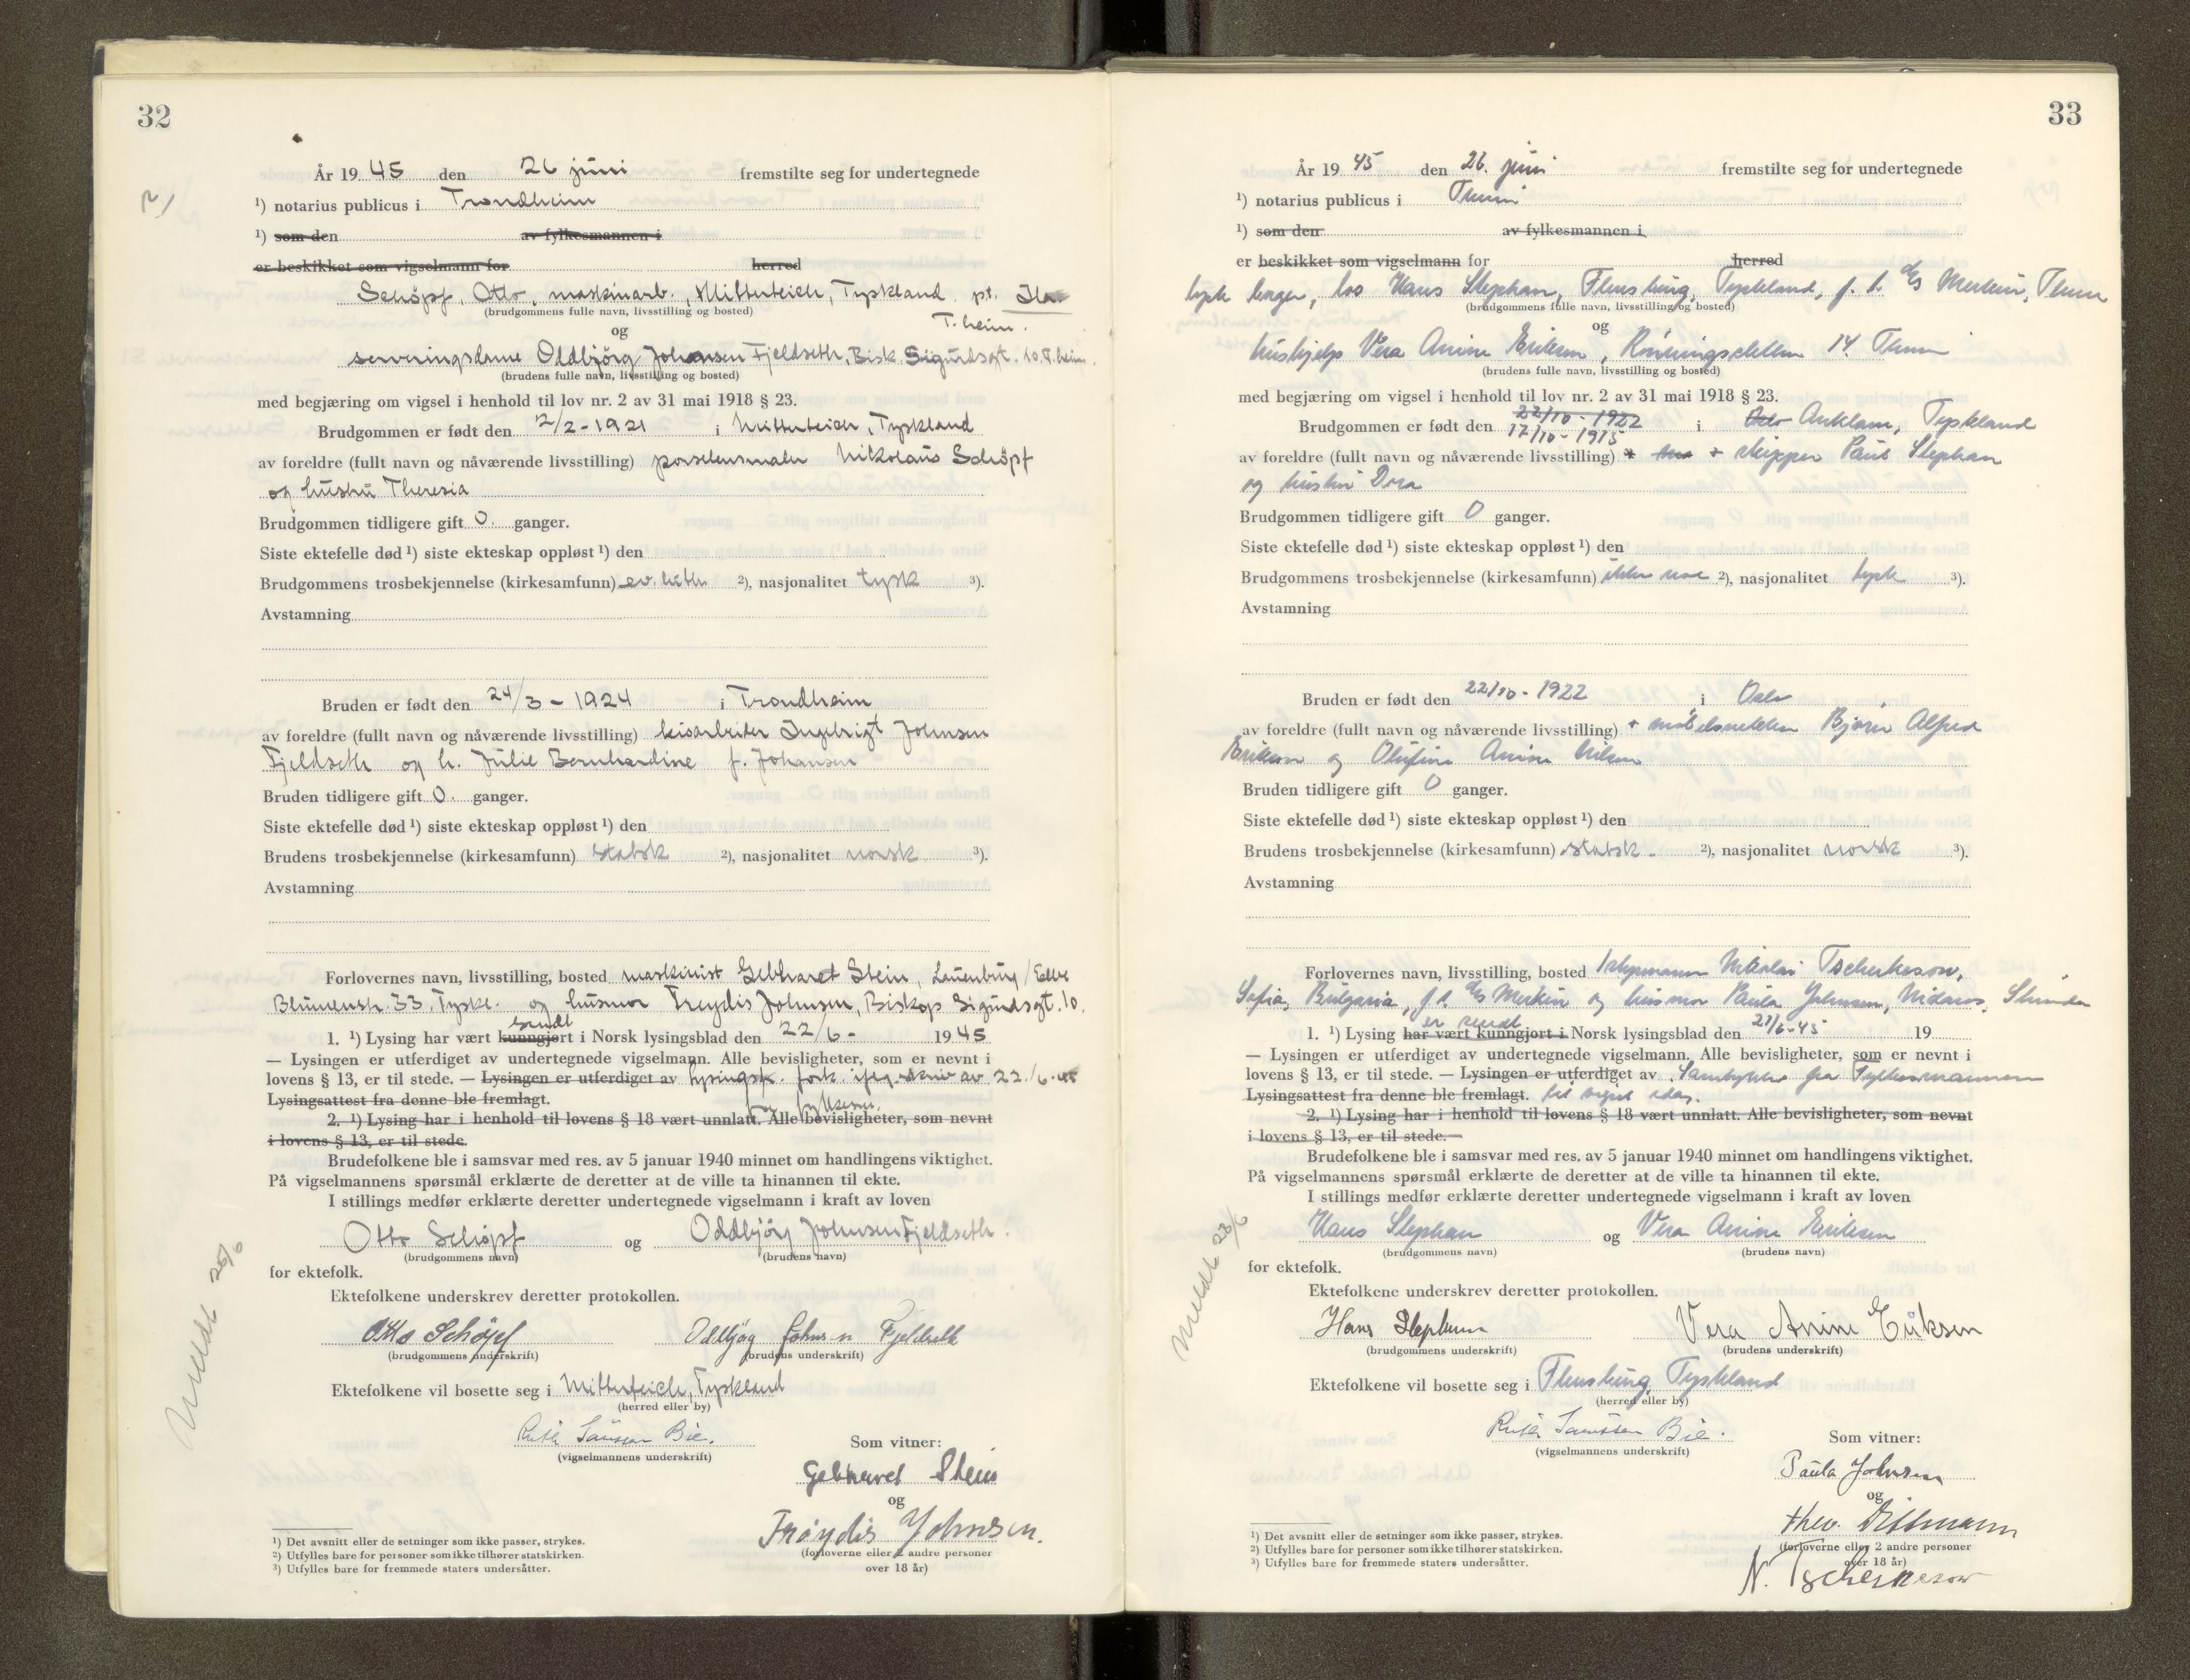 32
År 1945 den 26 juni fremstilte seg for undertegnede
¹) notarius publicus i Trondheim
¹) som den av fylkesmannen i
er beskikket som vigselmann for herred
Schöpf, Otto, maskinarb., Mitterteich, Tyskland pt. Ila
(brudgommens fulle navn, livsstilling og bosted)
T.heim.
og
serveringsdame Oddbjörg Johansen Fjeldseth, Bisk. Sigurdsgt. 10. T.heim.
(brudens fulle navn, livsstilling og bosted)
med begjæring om vigsel i henhold til lov nr. 2 av 31 mai 1918 § 23.
Brudgommen er født den 2/2-1921 i Mitterteich, Tyskland
av foreldre (fullt navn og nåværende livsstilling) porselensmaler Nikolaus Schöpf
og hustru Theresia
Brudgommen tidligere gift 0. ganger.
Siste ektefelle død ¹) siste ekteskap oppløst ¹) den
Brudgommens trosbekjennelse (kirkesamfunn) ev. luth. ²), nasjonalitet tysk ³).
Avstamning
Bruden er født den 24/3 - 1924 i Trondheim
av foreldre (fullt navn og nåværende livsstilling) Ingebrigt Johnsen
Fjeldseth og h. Julie Bernhardine f. Johansen
Bruden tidligere gift 0. ganger.
Siste ektefelle død ¹) siste ekteskap oppløst ¹) den
Brudens trosbekjennelse (kirkesamfunn) statsk ²), nasjonalitet norsk ³).
Avstamning
Forlovernes navn, livsstilling, bosted maskinist Gebhard Stein, Lauenburg/Elbe
Blumenstr. 33, Tyskl. og husmor Frøydis Johnsen, Biskop Sigurdsgt. 10.
sendt
1. ¹) Lysing har vært kunngjort i Norsk lysingsblad den 22/6 - 1945
— Lysingen er utferdiget av undertegnede vigselmann. Alle bevisligheter, som er nevnt i
lovens § 13, er til stede. — Lysingen er utferdiget av lysingsf. fork. av 22/6.45
Lysingsattest fra denne ble fremlagt. fra fylkesm.
2. ¹) Lysing har i henhold til lovens § 18 vært unnlatt. Alle bevisligheter, som nevnt
i lovens § 13, er til stede.
Brudefolkene ble i samsvar med res. av 5 januar 1940 minnet om handlingens viktighet.
På vigselmannens spørsmål erklærte de deretter at de ville ta hinannen til ekte.
I stillings medfør erklærte deretter undertegnede vigselmann i kraft av loven
Otto Schöpf og Oddbjörg Johnsen Fjeldseth.
(brudgommens navn) (brudens navn)
for ektefolk.
Ektefolkene underskrev deretter protokollen.
Otto Schöpf Oddbjög Johnsen Fjeldseth
(brudgommens underskrift) (brudens underskrift)
Ektefolkene vil bosette seg i Mitterteich, Tyskland
(herred eller by)
Ruth Bie.
(vigselmannens underskrift)
Som vitner:
Gebhard Stein
og
Frøydis Johnsen.
(forloverne eller 2 andre personer
over 18 år)
¹) Det avsnitt eller de setninger som ikke passer, strykes.
²) Utfylles bare for personer som ikke tilhører statskirken.
³) Utfylles bare for fremmede staters undersåtter.
Meldt 28/6
33
År 1945 den 26. juni fremstilte seg for undertegnede
¹) notarius publicus i T.heim
¹) som den av fylkesmannen i
er beskikket som vigselmann for herred
tysk borger, los Hans Stephan, Flensburg, Tyskland, p. t. d/s Merkur, T.heim
(brudgommens fulle navn, livsstilling og bosted)
og
hushjelp Vera Anine Eriksen, 14. T.heim
(brudens fulle navn, livsstilling og bosted)
med begjæring om vigsel i henhold til lov nr. 2 av 31 mai 1918 § 23.
22/10 - 1922
Brudgommen er født den 17/10 - 1915 i Oslo Anklam, Tyskland
av foreldre (fullt navn og nåværende livsstilling) + skipper Paul Stephan
og hustru Dora
Brudgommen tidligere gift 0 ganger.
Siste ektefelle død ¹) siste ekteskap oppløst ¹) den
Brudgommens trosbekjennelse (kirkesamfunn) ikke noe ²), nasjonalitet tysk ³).
Avstamning
Bruden er født den 22/10 - 1922 i Oslo
av foreldre (fullt navn og nåværende livsstilling) + møbelsnekker Bjarne Alfred
Eriksen og Olufine Anine Nilsen
Bruden tidligere gift 0 ganger.
Siste ektefelle død ¹) siste ekteskap oppløst ¹) den
Brudens trosbekjennelse (kirkesamfunn) statsk. ²), nasjonalitet norsk ³).
Avstamning
Forlovernes navn, livsstilling, bosted Nikolai Tscherkesow,
Sofia, Bulgaria, p.t. d/s Merkur og husmor Paula Johnsen, Nidarø, Strinda
er sendt
1. ¹) Lysing har vært kunngjort i Norsk lysingsblad den 21/6-45 19
— Lysingen er utferdiget av undertegnede vigselmann. Alle bevisligheter, som er nevnt i
lovens § 13, er til stede. — Lysingen er utferdiget av Samtykke fra Fylkesmannen
Lysingsattest fra denne ble fremlagt. til vigsel idag.
2. ¹) Lysing har i henhold til lovens § 18 vært unnlatt. Alle bevisligheter, som nevnt
i lovens § 13, er til stede.—
Brudefolkene ble i samsvar med res. av 5 januar 1940 minnet om handlingens viktighet.
På vigselmannens spørsmål erklærte de deretter at de ville ta hinannen til ekte.
I stillings medfør erklærte deretter undertegnede vigselmann i kraft av loven
Hans Stephan og Vera Anine Eriksen
(brudgommens navn) (brudens navn)
for ektefolk.
Ektefolkene underskrev deretter protokollen.
Hans Stephan Vera Anine Eriksen
(brudgommens underskrift) (brudens underskrift)
Ektefolkene vil bosette seg i Flensburg, Tyskland
(herred eller by)
Ruth Bie.
(vigselmannens underskrift)
Som vitner:
Paula Johnsen
og
Theo. Dittmann
(forloverne eller 2 andre personer
over 18 år)
N. Tscherkesow
¹) Det avsnitt eller de setninger som ikke passer, strykes.
²) Utfylles bare for personer som ikke tilhører statskirken.
³) Utfylles bare for fremmede staters undersåtter.
Meldt 28/6